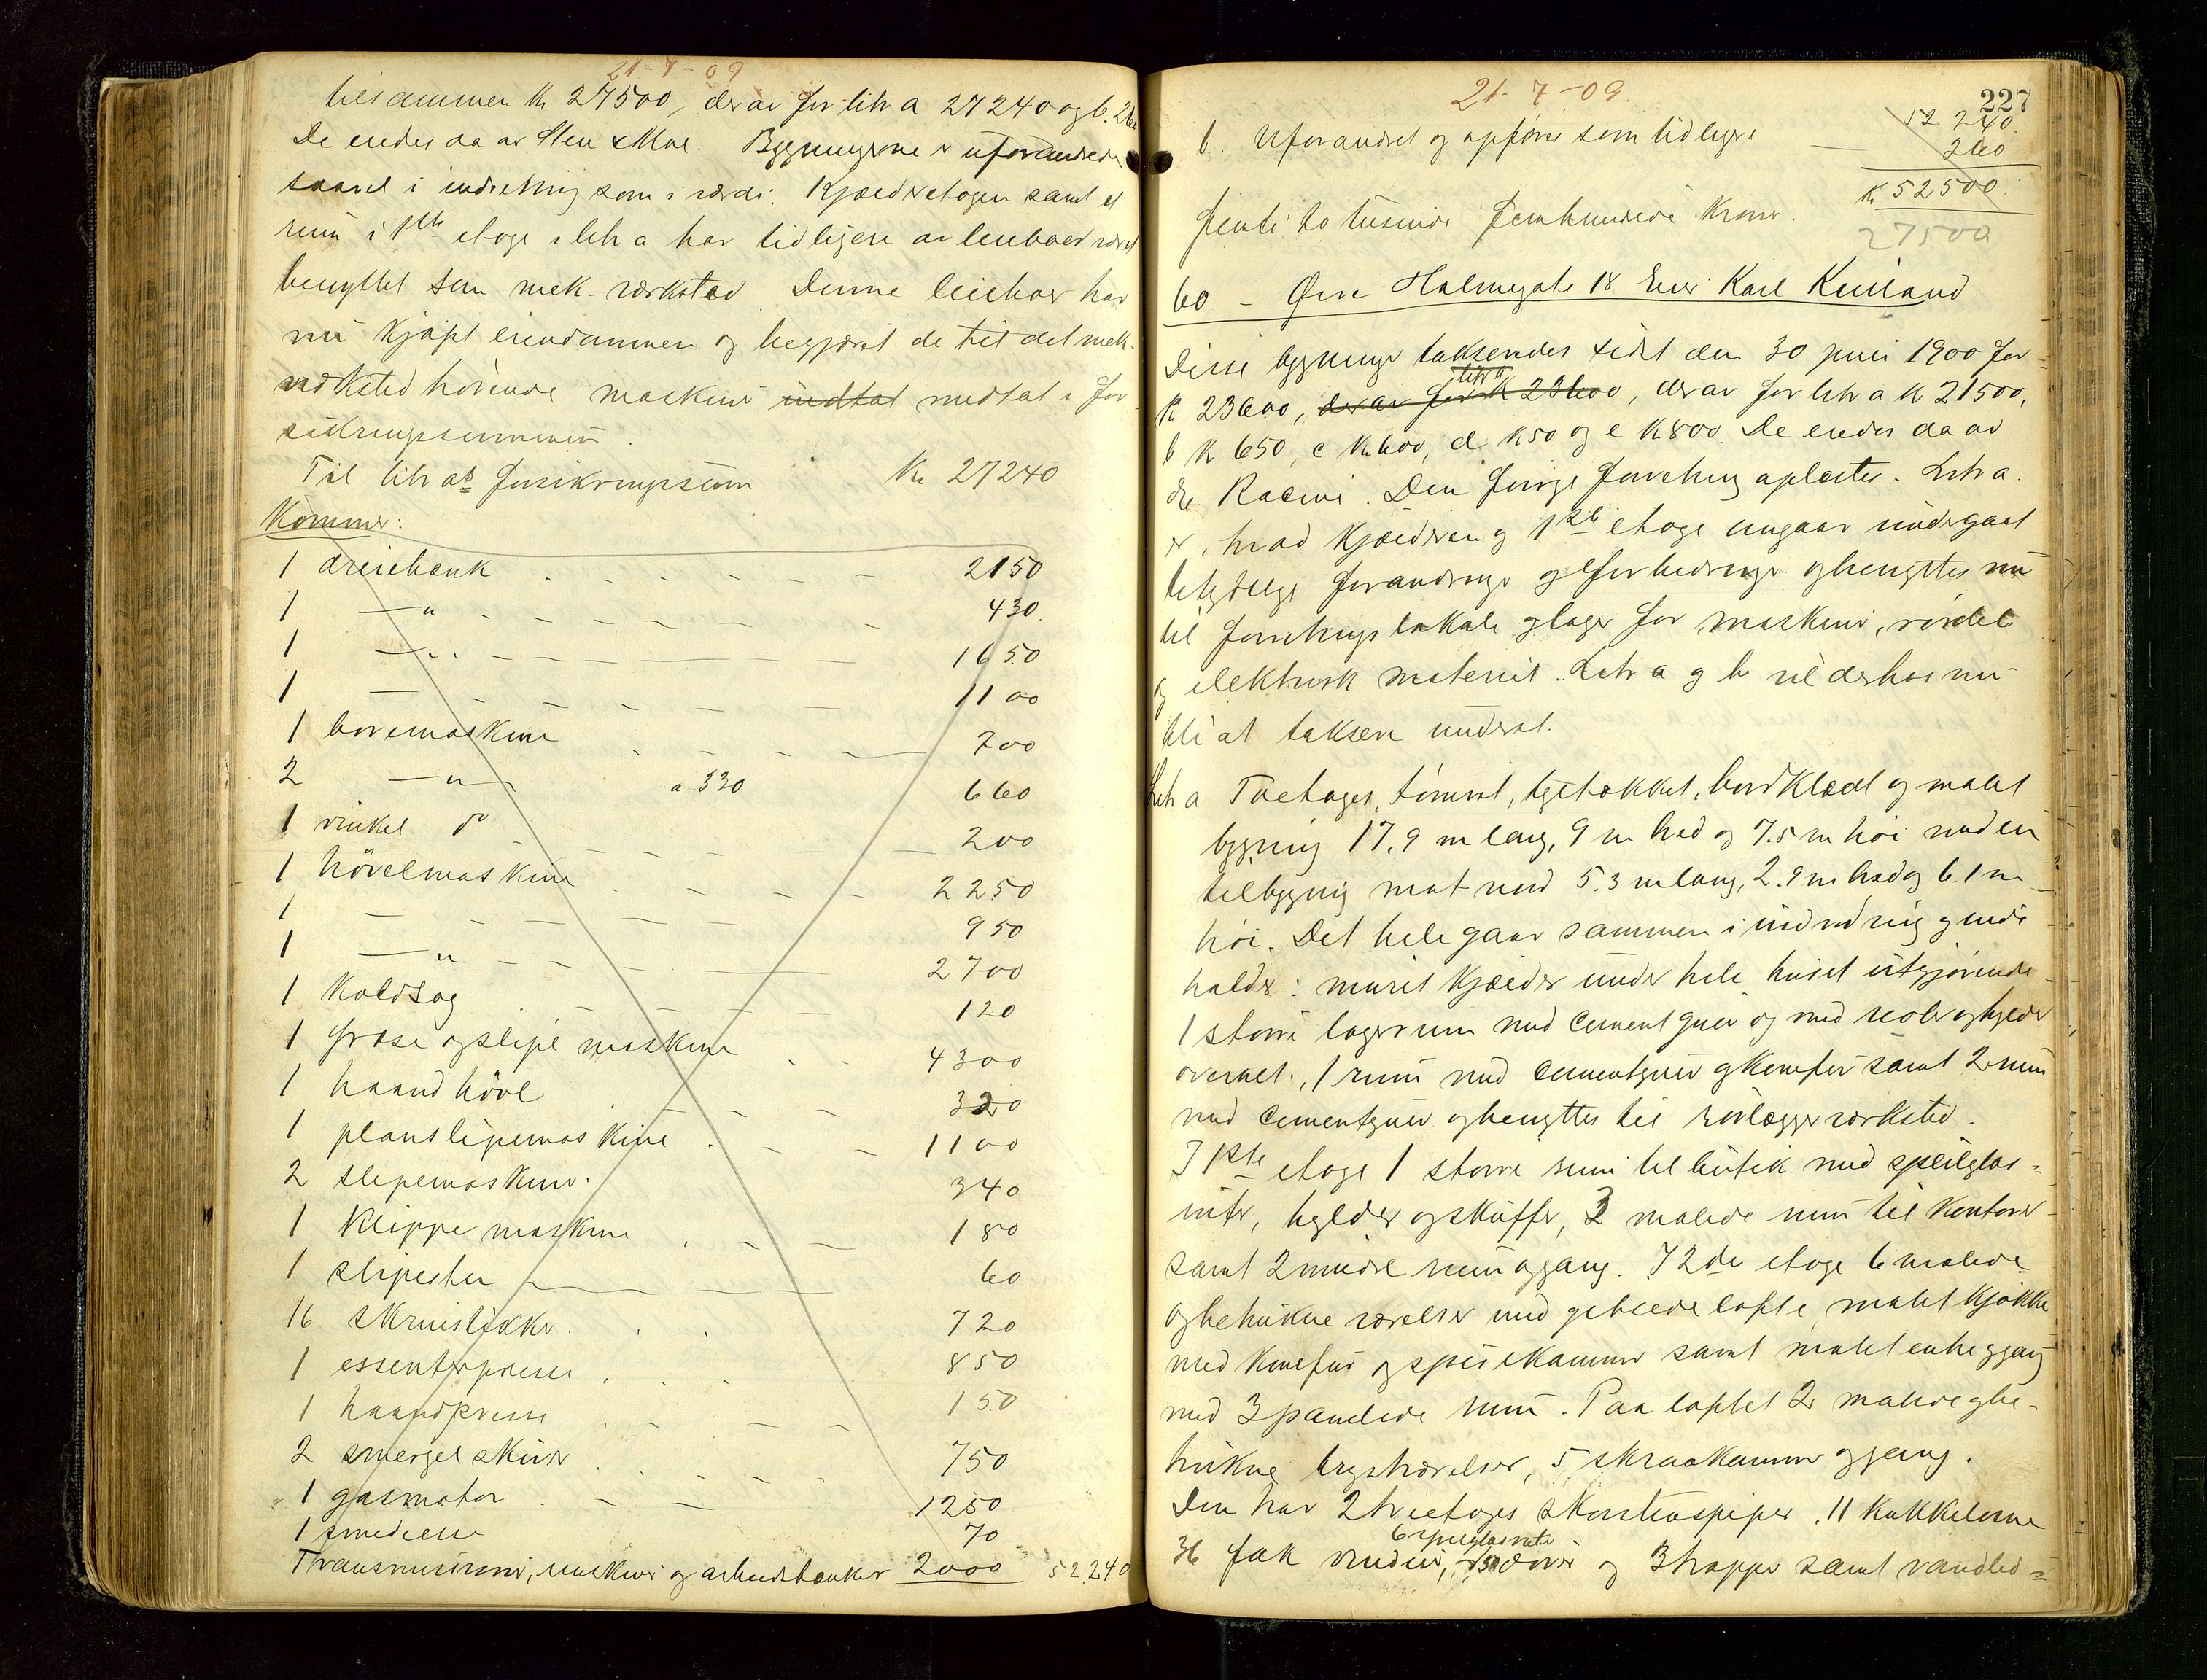 21-7-09
tilsammen Kr 27500, derav for litr a 27240 og b. 260
De eiedes da av Sten & Moe. Bygningerne er uforandrede
saavel i indretning som i værdi. Kjælderetagen samt et
rum i 1ste etage i litr a har tidligere av leieboer været
benyttet som mek. verksted. Denne leieboer har
nu kjøpt eiendommen og begjæret de til det mek.
verksted hørende maskiner indtat medtat i for-
sikringssummen.
Til litr a's forsikringssum Kr 27240
Kommer:
1 dreiebænk 2150
1 —"— 430
1 —"— 1650
1 — 1100
1 boremaskine 700
2 —"— a 330 660
1 vinkel do 200
1 hövelmaskine 2250
1 — 950
1 —"— 2700
1 Koldsag 120
1 fræse og slipe maskine 4300
1 haandhövl 320
1 planslipemaskine 1100
2 slipemaskiner 340
1 Klippe maskine 180
1 slipesten 60
16 skruestikker 720
1 essenterpresse 850
1 haandpresse 150
2 smergelskiver 750
1 gasmotor 1250
1 smedeesse 70
Transmissioner, maskiner og arbeidsbænker 2000 52,240
21-7-09
227
52 240
b. Uforandret og opføres som tidligere — 260
Kr 52500.
femti to tusinde femhundrede Kroner.
27500
60 - Øvre Holmegate 18 Eier Karl Kielland
Disse bygninger taksertes sidst den 30 juni 1900 for
Kr 23600, derav for litr a K 23600, derav for litr a K 21500,
b K 650, c K 600, d K 50 og e K 800. De eiedes da av
do Racine. Den forrige forretning oplæstes. Litr a.
er, hvad kjælderen og 1ste etage angaar undergaat
betydelige forandringer og forbedringer og benyttes nu
til forretningslokale og lager for maskiner, rördele
og elektrisk materiel. Litr a og b vil derhos nu
bli at taksere underet.
Litr a Toetages, tömret, teglstækket, bordklædt og malet
bygning 17.9 m lang, 9 m bred og 7.5 m höi med en
tilbygning mot nord 5.3 m lang, 2.9 m bred og 6.1 m
höi. Det hele gaar sammen i indredning og inde-
holder: muret kjælder under hele huset utgjørende
1 större lagerrum med cementgulv og med reoler og hylder
overalt, 1 rum med cementgulv og komfur samt 2 rum
med cementgulv og benyttes til rörlæggerverksted.
I 1ste etage 1 större rum til butik med speilglas-
ruter, hylder og skuffer, 3 malede rum til kontorer
samt 2 mindre rum og gang. I 2den etage 6 malede
og betrukne værelser med gibsede lofter, malet kjøkken
med komfur og spisekammer samt malet entre og gang
med 3 panelede rum. Paa loftet 2 malede og be-
trukne kvistværelser, 5 skraakammer og gang.
Den har 2 treetages skorstenspiper, 11 kakkelovne
6 speilglasruter
36 fak vinduer, 30 döre og 3 trapper samt vandled-